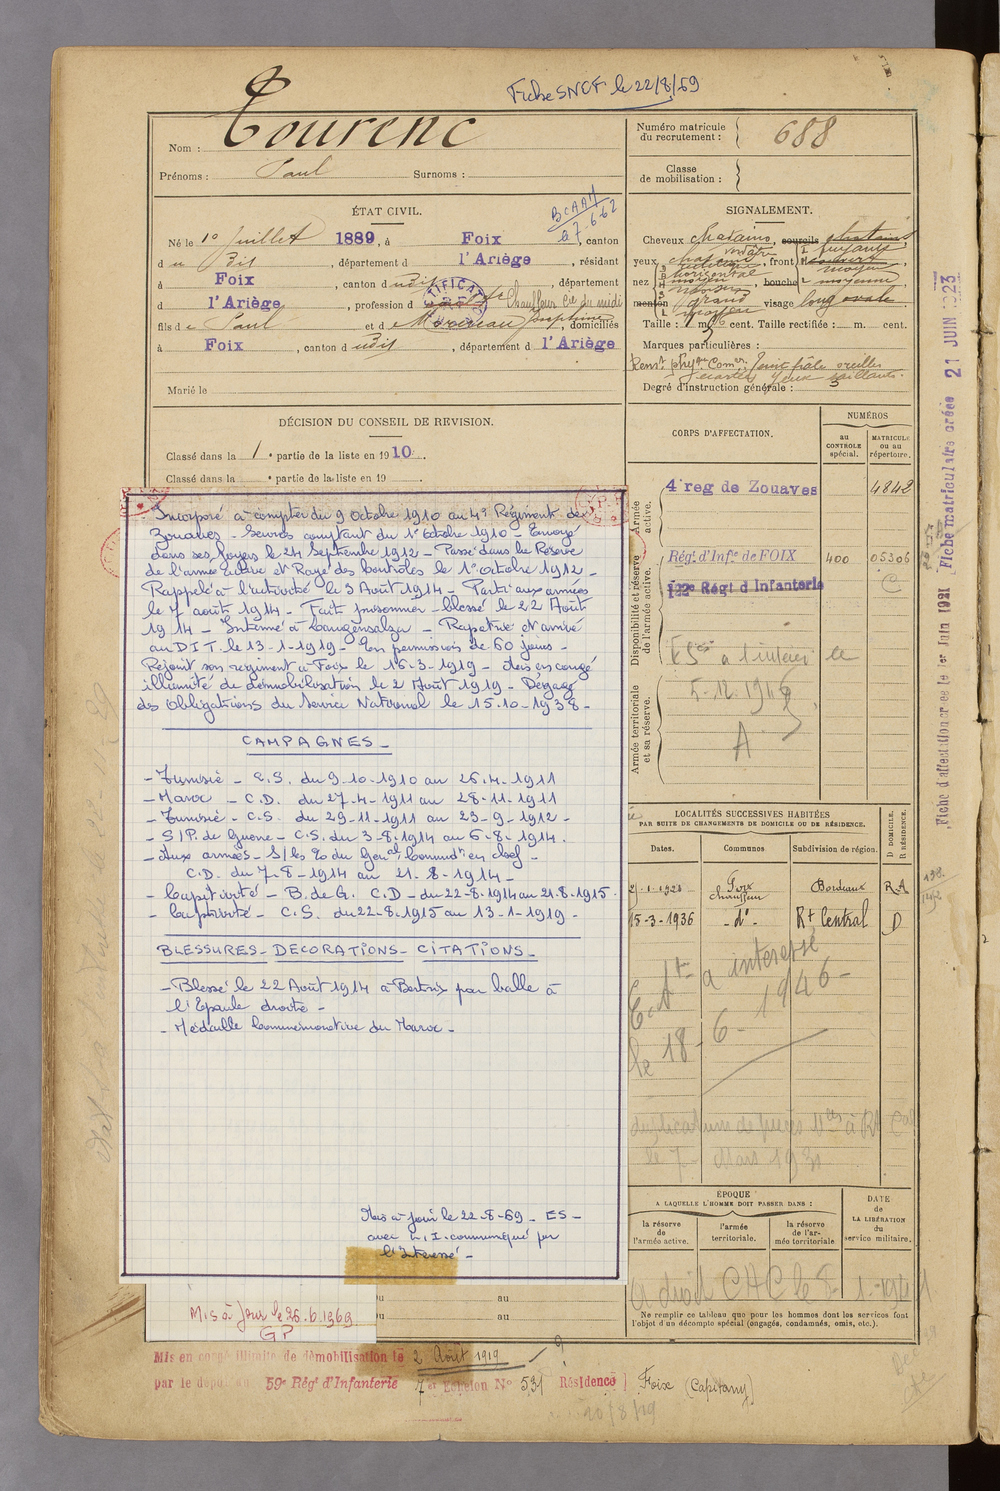 Fiche SNCF le 22/8/69
Nom : Tourenc
Prénoms : Paul Surnoms :
Numéro matricule du recrutement : 688
Classe de mobilisation :
ÉTAT CIVIL.
BCAAM
67.6.62
Né le 1er Juillet 1889, à Foix, canton
du Dit, département d l'Ariège, résidant
à Foix, canton d udit, département
d l'Ariège, profession d Chauffeur Cie du midi
fils de Paul et de Morineau Josephine, domiciliés
à Foix, canton d udit, département d l'Ariège
Marié le
SIGNALEMENT.
Cheveux chatains, sourcils chatains
yeux verdâtre, front fuyant
moyen
nez horizontal moyen, bouche moyenne
menton grand visage long ovale
Taille : 1 m. cent. Taille rectifiée : m. cent.
Marques particulières :
Renst phyque Comre : Teint pâle oreilles
écartées yeux saillants.
Degré d'instruction générale : 3
DÉCISION DU CONSEIL DE REVISION.
Classé dans la 1e partie de la liste en 1910.
Classé dans la e partie de la liste en 19
CORPS D'AFFECTATION.
NUMÉROS
au CONTROLE spécial.
MATRICULE ou au répertoire.
Armée active.
4e reg de Zouaves 4842
Disponibilité et réserve de l'armée active.
Rég. d'Infie de FOIX 400 05306
122e Régt d'Infanterie
à l'intéressé le
5-12-1946
Armée territoriale et sa réserve.
Incorporé à compter du 9 Octobre 1910 au 4e Régiment de
Zouaves - Services comptant du 1er Octobre 1910 - Envoyé
dans ses foyers le 24 Septembre 1912 - Passé dans la Réserve
de l'armée active et Rayé des controles le 1er Octobre 1912 -
Rappelé à l'activité le 3 Août 1914 - Parti aux armées
le 7 août 1914 - Fait prisonnier - blessé le 22 Août
1914 - Interné à Langensalza - Rapatrié et arrivé
au D.I.T. le 13-1-1919 - En permission de 60 jours -
Rejoint son régiment à Foix le 16-3-1919 - Mis en congé
illimité de démobilisation le 2 Août 1919 - Dégagé
des obligations du Service National le 15-10-1938 -
CAMPAGNES -
- Tunisie - C.S. du 9-10-1910 au 26-4-1911
- Maroc - C.D. du 27-4-1911 au 28-11-1911
- Tunisie - C.S. du 29-11-1911 au 23-9-1912 -
- S/P. de Guerre - C.S. du 3-8-1914 au 6-8-1914.
- Aux armées - S/les Eo du Genal Commdt en chef -
C.D. du 7-8-1914 au 21-8-1914 -
- Captivité - B. de G. C.D - du 22-8-1914 au 21-8-1915 -
- Captivité - C.S. du 22-8-1915 au 13-1-1919 -
BLESSURES - DECORATIONS - CITATIONS -
- Blessé le 22 Août 1914 à Bertrix par balle à
l'Epaule droite -
- Médaille Commémorative du Maroc -
Mis à jour le 22-8-69 - ES -
avec L.I. communiqué par
l'Interessé -
LOCALITÉS SUCCESSIVES HABITÉES
PAR SUITE DE CHANGEMENTS DE DOMICILE OU DE RÉSIDENCE.
Dates. Communes Subdivision de région. D DOMICILE. R RÉSIDENCE.
Foix chauffeur Bordeaux RA
15-3-1936 - d° - Rt Central D
E.d.S. à interessé
le 18-6-1946 -
duplicatum de pièces Mles à Rt Cal
le 7 - Mars 1931
ÉPOQUE
A LAQUELLE L'HOMME DOIT PASSER DANS :
la réserve de l'armée active.
l'armée territoriale.
la réserve de l'armée territoriale.
DATE de LA LIBÉRATION du service militaire.
a droit CHC le
Ne remplir ce tableau que pour les hommes dont les services font
l'objet d'un décompte spécial (engagés, condamnés, omis, etc.).
Du au
au
Mis à Jour le 26.6.1969
GP
Mis en congé illimité de démobilisation le 2 Août 1919
par le dépôt du 59e Régt d'Infanterie 7e Echelon No 531 Résidence Foix (Capitany)
20/8/19
Fiche d'affectation créée le 1er Juin 1921 Fiche matriculaire créée 21 JUIN 1923